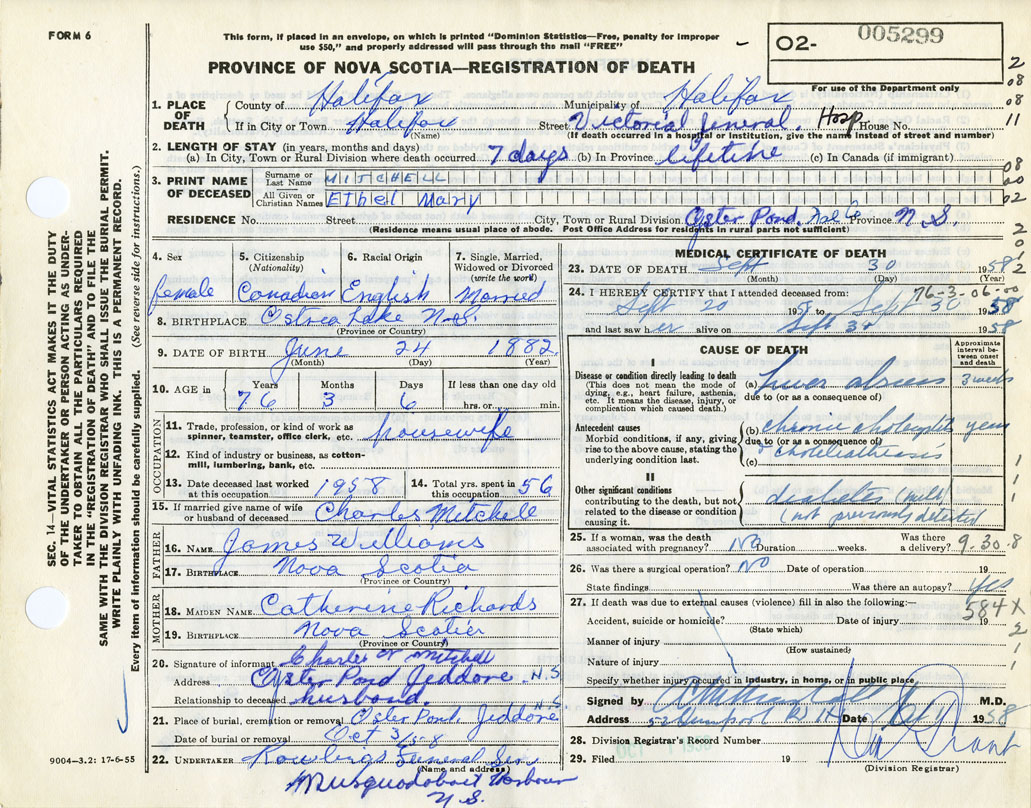 FORM 6
This form, if placed in an envelope, on which is printed "Dominion Statistics—Free, penalty for improper
use $50," and properly addressed will pass through the mail "FREE"
PROVINCE OF NOVA SCOTIA—REGISTRATION OF DEATH
O2- 005299
For use of the Department only
2
08
08
11
08
00
02
2
0
0
2
1. PLACE OF DEATH { County of Halifax Municipality of Halifax
If in City or Town Halifax Street Victoria General. Hosp House No.
(Name) (If death occurred in a hospital or institution, give the name instead of street and number)
2. LENGTH OF STAY (in years, months and days)
(a) In City, Town or Rural Division where death occurred 7 days (b) In Province lifetime (c) In Canada (if immigrant)
3. PRINT NAME OF DECEASED { Surname or Last Name MITCHELL
All Given or Christian Names Ethel Mary
RESIDENCE No. Street City, Town or Rural Division Oyster Pond. Province N.S.
(Residence means usual place of abode. Post Office Address for residents in rural parts not sufficient)
4. Sex female
5. Citizenship (Nationality) Canadian
6. Racial Origin English
7. Single, Married, Widowed or Divorced (write the word) Married
8. BIRTHPLACE Ostrea Lake N.S.
(Province or Country)
9. DATE OF BIRTH June 24 1882
(Month) (Day) (Year)
10. AGE in Years 76 Months 3 Days 6 If less than one day old
hrs. or min.
OCCUPATION
11. Trade, profession, or kind of work as
spinner, teamster, office clerk, etc. housewife
12. Kind of industry or business, as cotton-
mill, lumbering, bank, etc.
13. Date deceased last worked at this occupation 1958 14. Total yrs. spent in this occupation 56
15. If married give name of wife
or husband of deceased Charles Mitchell
FATHER
16. NAME James Williams
17. BIRTHPLACE Nova Scotia
(Province or Country)
MOTHER
18. MAIDEN NAME Catherine Richards
19. BIRTHPLACE Nova Scotia
(Province or Country)
20. Signature of informant Charles Mitchell
Address Oyster Pond Jeddore N.S
Relationship to deceased husband.
21. Place of burial, cremation or removal Oster Pond. Jeddore N.S.
Date of burial or removal Oct 3/58
22. UNDERTAKER Rowlings Funeral
(Name and address)
Musquodoboit Harbour
N.S.
MEDICAL CERTIFICATE OF DEATH
23. DATE OF DEATH Sept 30 1958
(Month) (Day) (Year)
24. I HEREBY CERTIFY that I attended deceased from: 76-3-06-00
Sept 20 195 to Sept 30 1958
and last saw her alive on Sept 30 1958
CAUSE OF DEATH
Approximate interval between onset and death
I
Disease or condition directly leading to death (a) Liver abscess 3 weeks
(This does not mean the mode of
dying, e.g., heart failure, asthenia,
etc. It means the disease, injury, or
complication which caused death.)
due to (or as a consequence of)
Antecedent causes (b) chronic cholecystitis years
Morbid conditions, if any, giving
rise to the above cause, stating the
underlying condition last.
due to (or as a consequence of)
(c) cholelithiasis
II
Other significant conditions
contributing to the death, but not
related to the disease or condition
causing it.
diabetes (mild)
(not previously detected
1
1
1
25. If a woman, was the death
associated with pregnancy? No Duration weeks. Was there a delivery? 9.30.8
26. Was there a surgical operation? No Date of operation 19
State findings Was there an autopsy? Yes
27. If death was due to external causes (violence) fill in also the following:—
584X
Accident, suicide or homicide? Date of injury 19
(State which)
Manner of injury
(How sustained)
Nature of injury
Specify whether injury occurred in industry, in home, or in public place.
2
1
1
Signed by M.D.
Address Date 1958
28. Division Registrar's Record Number
29. Filed 19
(Division Registrar)
SEC. 14—VITAL STATISTICS ACT MAKES IT THE DUTY
OF THE UNDERTAKER OR PERSON ACTING AS UNDER-
TAKER TO OBTAIN ALL THE PARTICULARS REQUIRED
IN THE "REGISTRATION OF DEATH" AND TO FILE THE
SAME WITH THE DIVISION REGISTRAR WHO SHALL ISSUE THE BURIAL PERMIT.
WRITE PLAINLY WITH UNFADING INK. THIS IS A PERMANENT RECORD.
Every item of information should be carefully supplied. (See reverse side for instructions.)
9004—3.2: 17-6-55